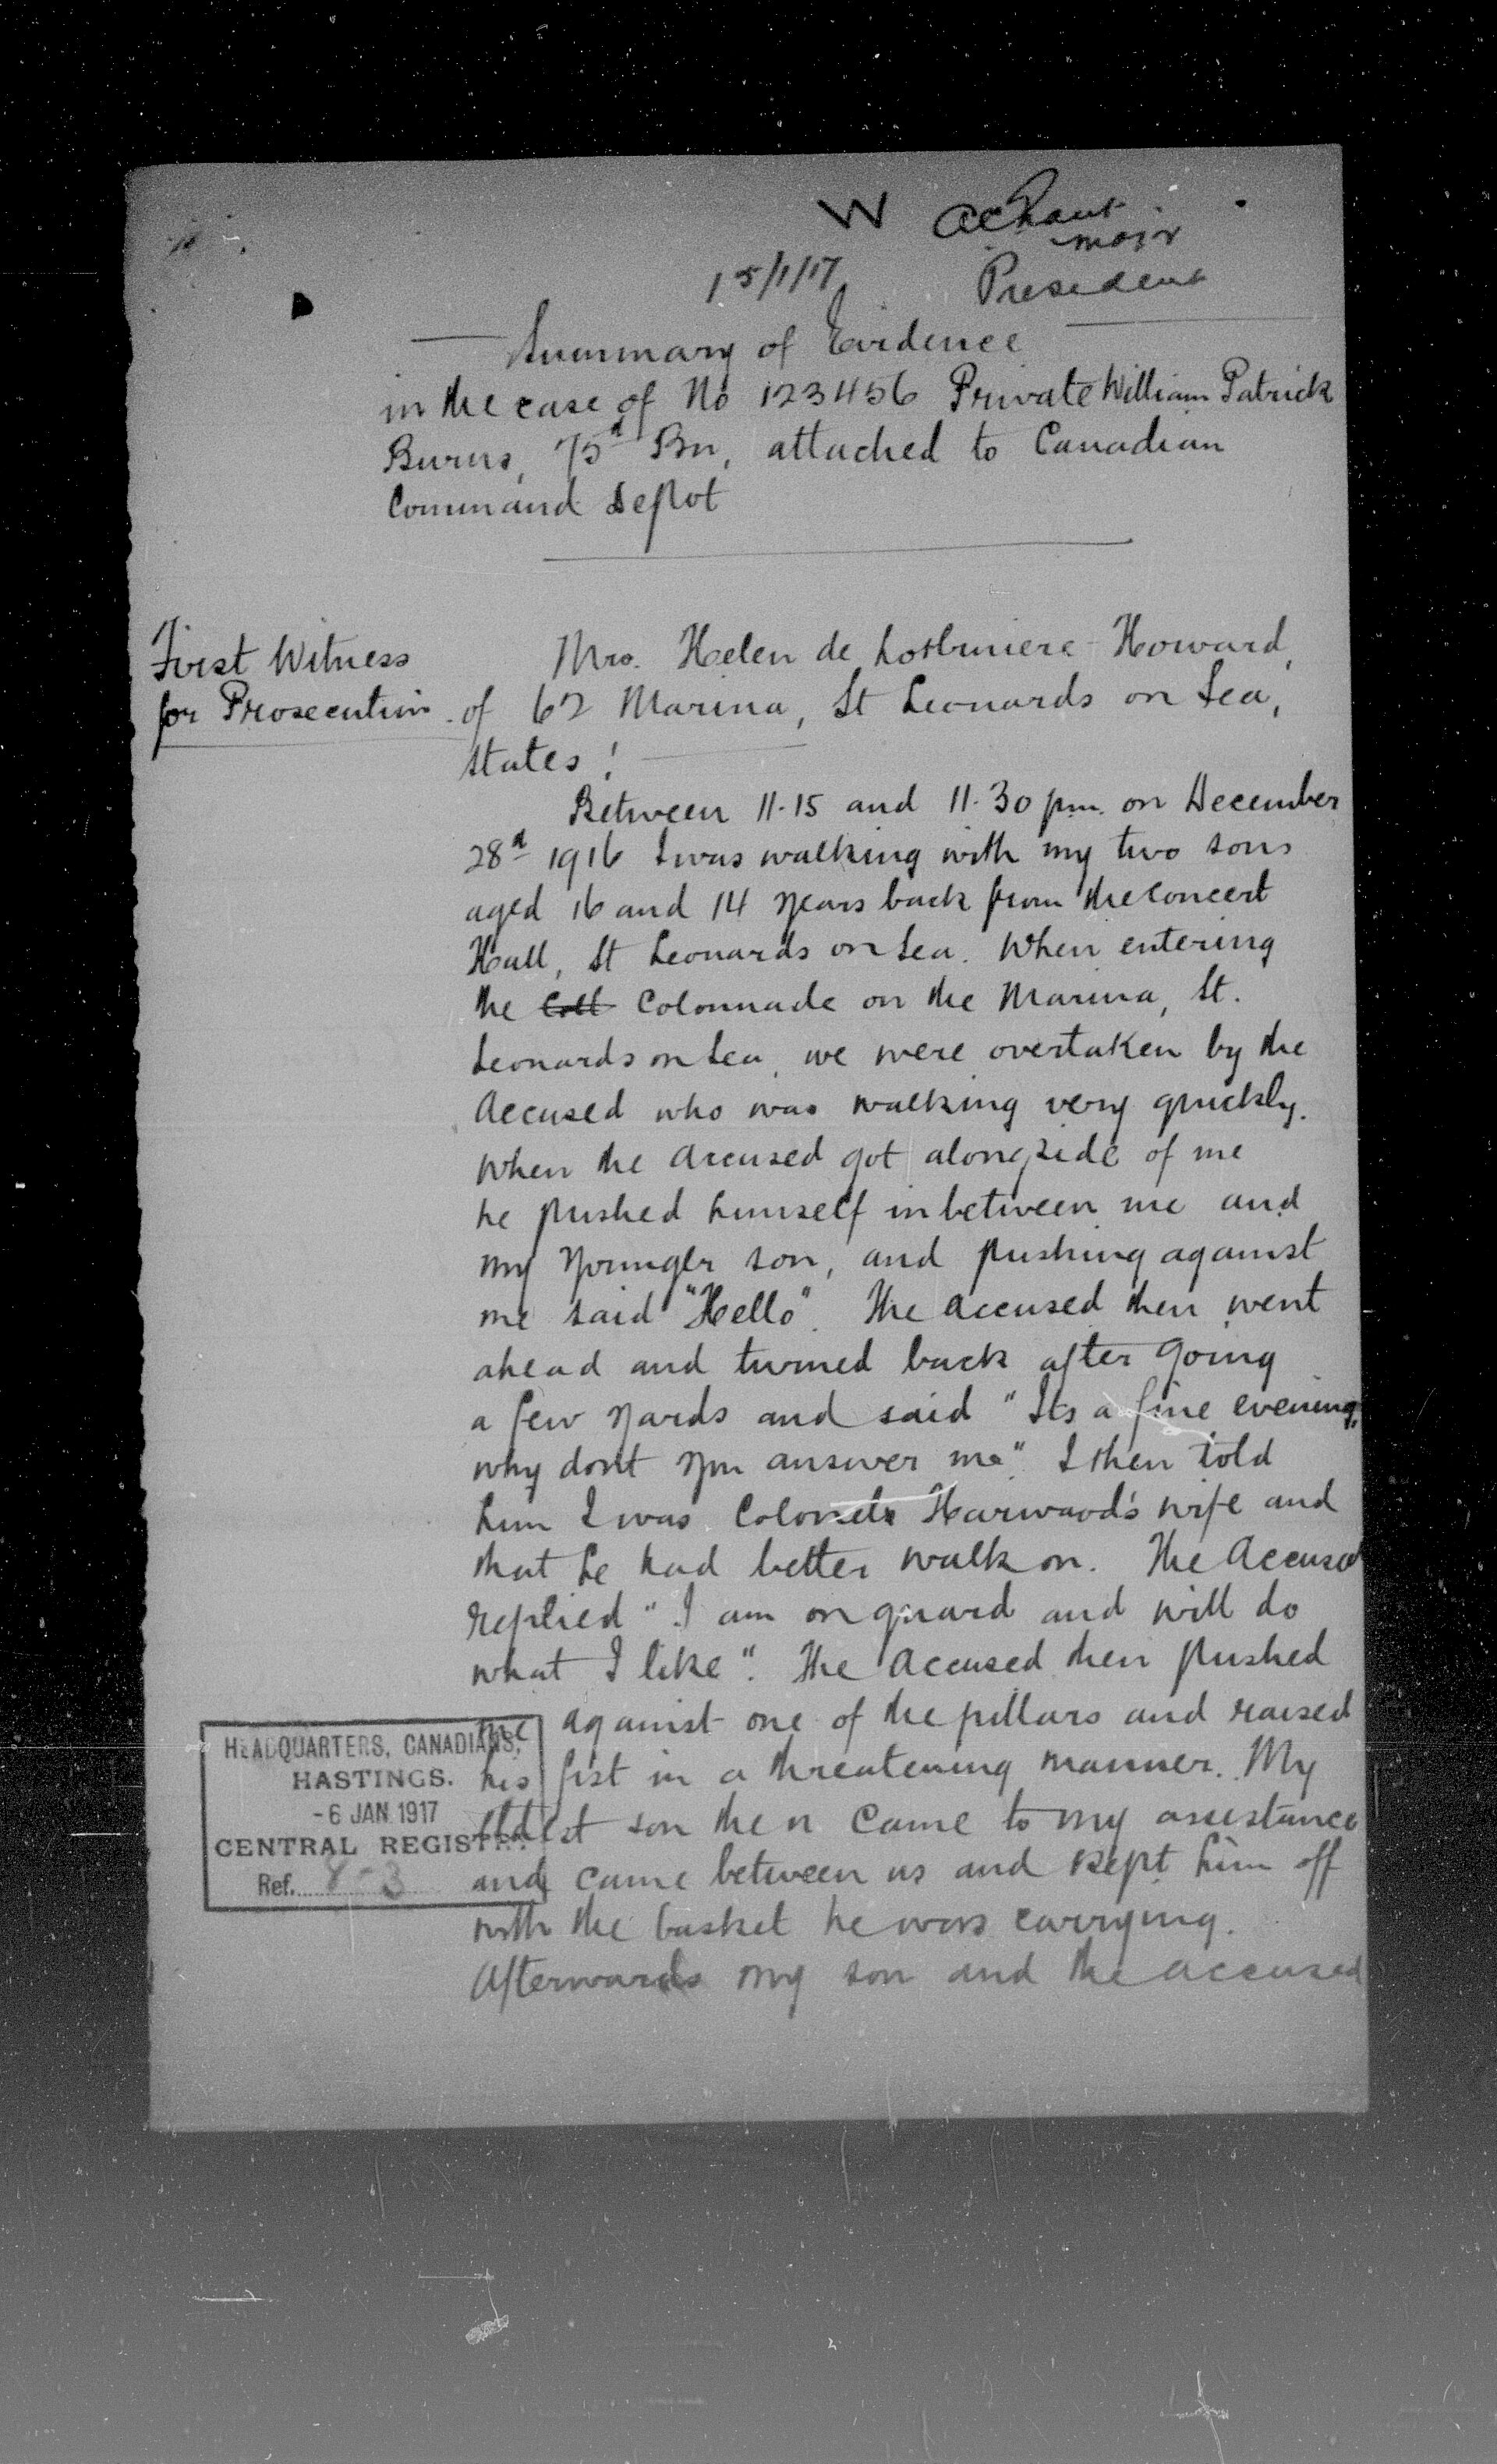 W
Major
15/1/17
President
Summary of Evidence
in the case of No 123456 Private William Patrick
Burns, 75th Bn, attached to Canadian
Command Depot
First Witness
for Prosecution
Mrs. Helen de Lotbiniere-Howard,
of 62 Marina, St Leonards on Sea,
states :
Between 11.15 and 11.30 pm. on December
28th 1916 I was walking with my two sons
aged 16 and 14 years back from the Concert
Hall, St Leonards on Sea. When entering
the Coll Colonnade on the Marina, St.
Leonards on Sea, we were overtaken by the
Accused who was walking very quickly.
When the Accused got alongside of me
he pushed himself in between me and
my younger son, and pushing against
me said "Hello". The Accused then went
ahead and turned back after going
a few yards and said "Its a fine evening,
why dont you answer me". I then told
him I was Colonel Harwood's wife and
that he had better walk on. The Accused
replied "I am on guard and will do
what I like". The Accused then pushed
me against one of the pillars and raised
his fist in a threatening manner. My
eldest son then came to my assistance
and came between us and kept him off
with the basket he was carrying.
Afterwards my son and the accused
HEADQUARTERS, CANADIANS,
HASTINGS.
-6 JAN 1917
CENTRAL REGISTRY
Ref. 8-3